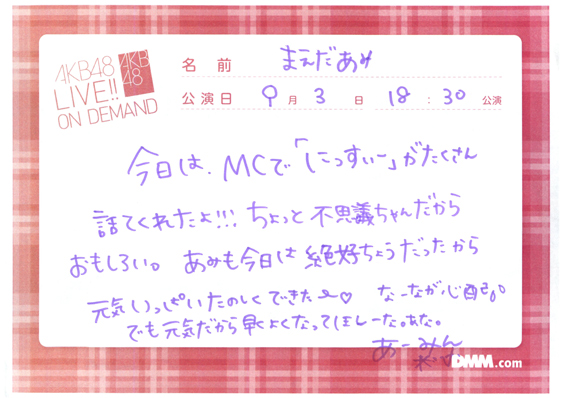 AKB48
LIVE!!
ON DEMAND
AKB
48
名前 まえだあみ
公演日 9月3日 18:30公演
今日は、MCで「にっすぃー」がたくさん
話てくれたよ!!! ちょっと不思議ちゃんだから
おもしろい。 あみも今日は絶好ちょうだったから
元気いっぱいたのしくできた〜♡ なーなが心配。
でも元気だから早くよくなってほしーな。
あーみん
DMM.com